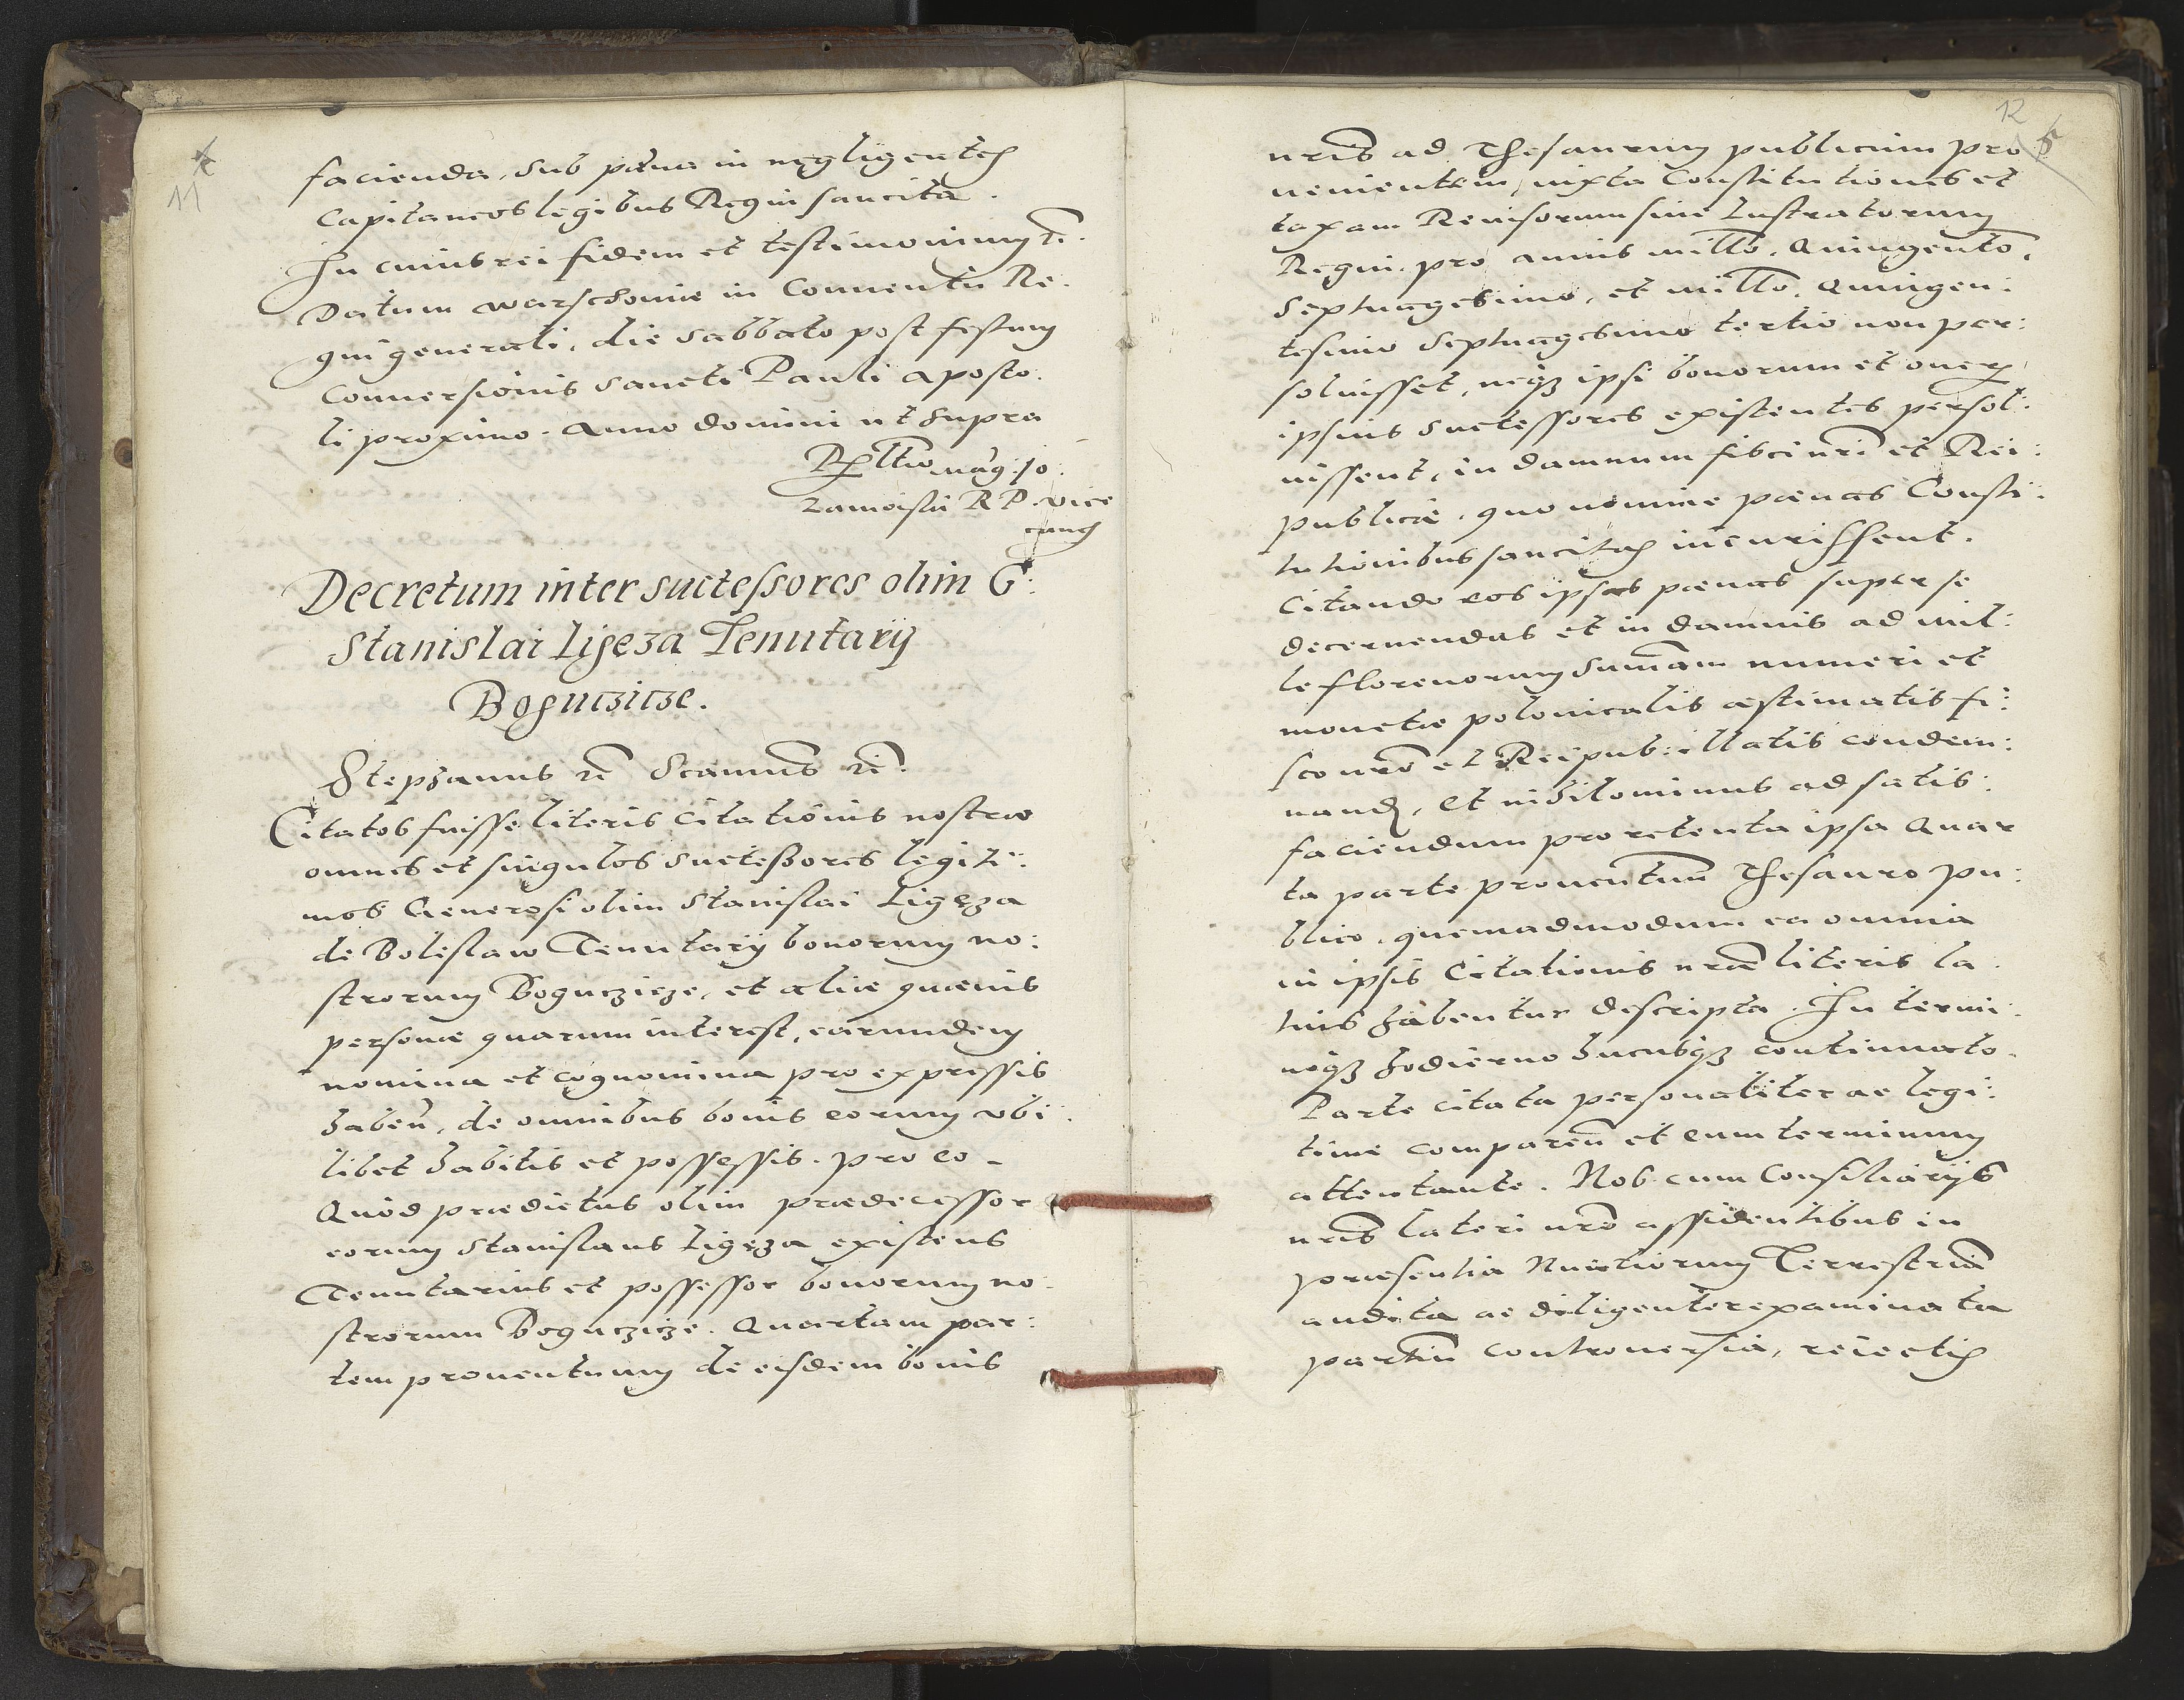 11
facienda, sub pæna in negligentes
Capitaneos legibus Regni sancita.
In cuius rei fidem et testimonium etc.
Datum Warschoviæ in Conventu Re:
gni generali, die sabbato post festum
Conversionis Sancti Pauli Aposto:
li proximo. Anno domini ut supra
Rltio mag: Jo:
Zamoiski R P. Vice
canc
Decretum inter successores olim G:
Stanislai Ligeza Tenutarij
Boguczicze.
Stephanus etc Scamus etc.
Citatos fuisse literis Citationis nostræ
omnes et singulos successores legiti:
mos Generosi olim Stanislai Ligęza
de Boleslaw Tenutarij bonorum no:
strorum Boguczicze, et aliæ quævis
personæ quarum interest, earumdem
nomina et cognomina pro expressis
haben, de omnibus bonis eorum ubi
libet habitis et possessis. pro eo
Quod prædictus olim prædecessor
eorum Stanislaus Ligęza existens
Tenutarius et possessor bonorum no:
strorum Boguczicze. Quartam par:
tem proventuum de eisdem bonis
12
nris ad Thesaurum publicum pro
venientem, iuxta Constitutiones et
taxam Revisorum sive Lustratorum
Regni. pro annis millo. Quingento.
Septuagesimo, et millo. Quingen:
tesimo Septuagesimo tertio non per:
solvisset, neq3 ipsi bonorum et onerum
ipsius successores existentes persol:
vissent, in damnum fisci nri et Rei:
publicæ. quo nomine pænas Consti:
tutionibus sancitas incurissent.
Citando eos ipsas pænas super se
decernendas et in damnis ad mil:
le florenorum sumam numeri et
monetæ polonicalis æstimatis fi:
sco nro et Reipub: illatis condem:
nand, Et nihilominus ad satis:
faciendum pro retenta ipsa Quar
ta parte proventuum Thesauro pu:
blico. quemadmodum ea omnia
in ipsis Citationis nræ literis la
tius habentur descripta. In termi:
noq3 hodierno hucusq3 continuato.
Parte citata personaliter ac legi:
time comparen et eum terminum
attentante. Nos cum Consiliarijs
nris lateri nro assidentibus in
præsentia Nuntiorum Terrestrium
audita ac diligenter examinata
partium controversia, reiectis